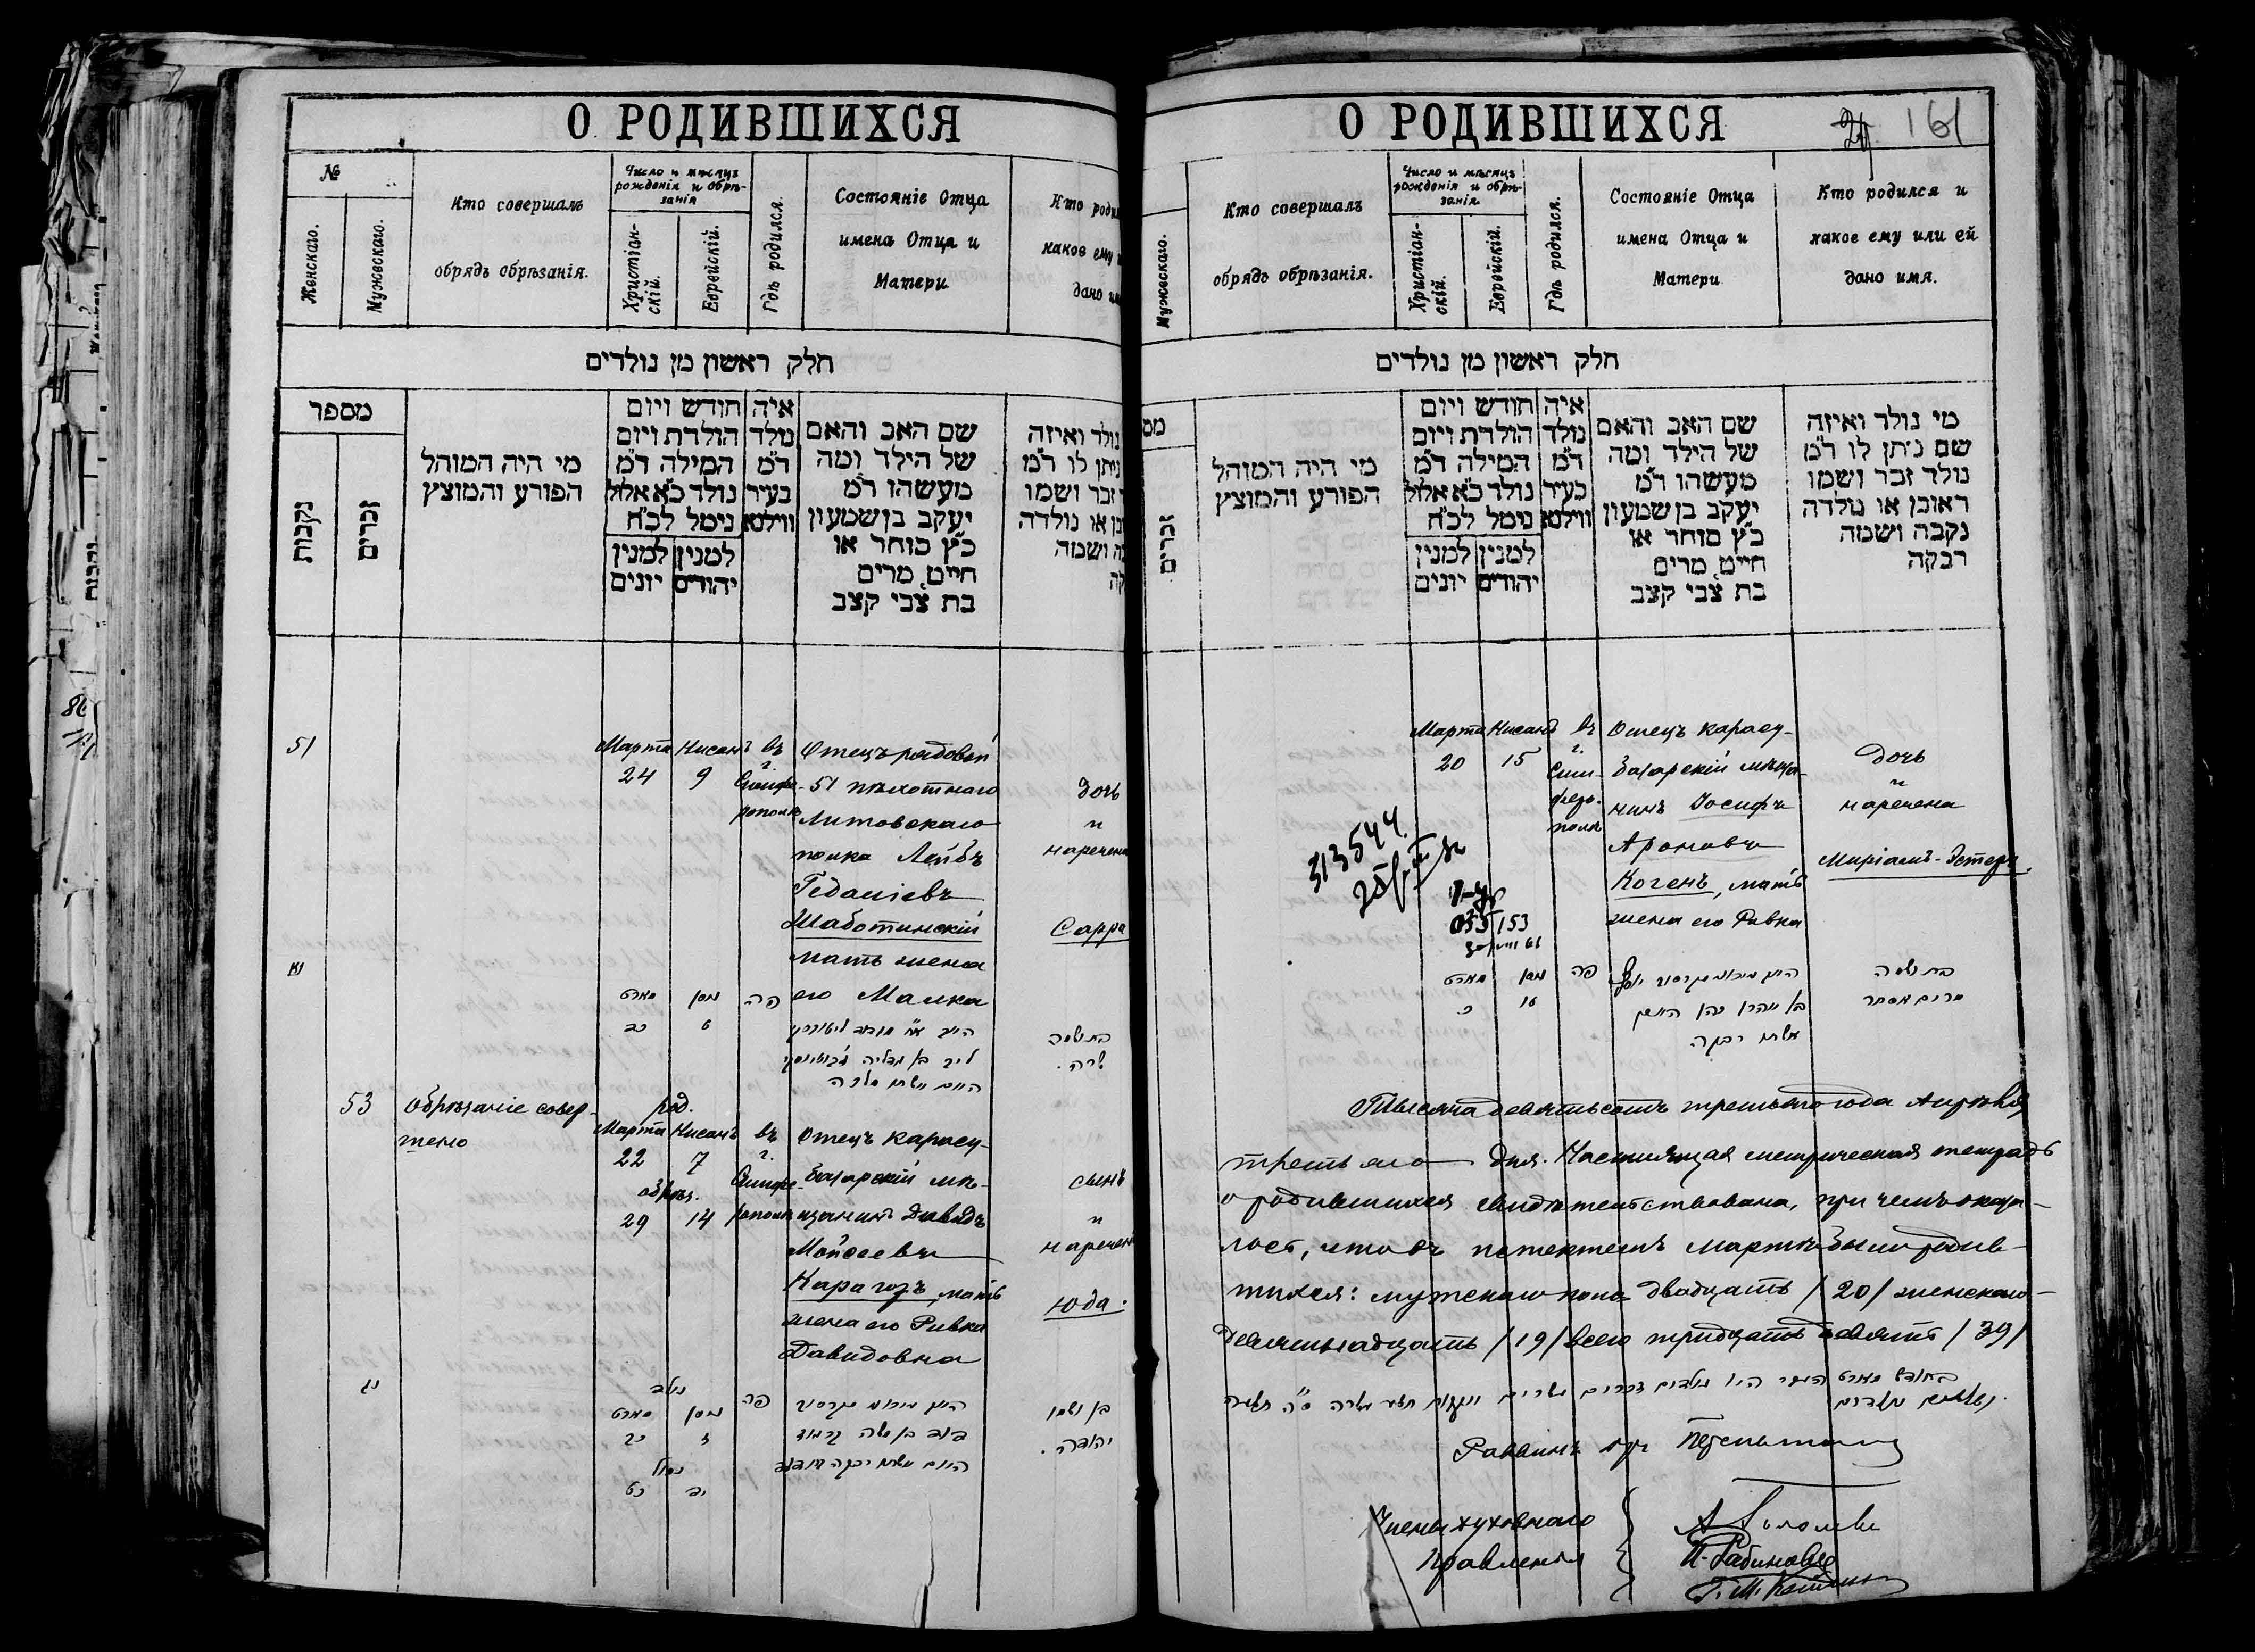 О РОДИВШИХСЯ
№
Женскаго.
Мужескаго.
Кто совершалъ
обрядъ обрѣзанія.
Число и мѣсяцъ
рожденія и обрѣ-
занія
Христіан-
скій.
Еврейскій.
Гдѣ родился.
Состояніе Отца
имена Отца и
Матери
Кто роди
какое ему
дано
חלק ראשון מן נולדים
מספר
נקבות
זכרים
מי היה המוהל
הפורע והמוצץ
חודש ויום
הולדת ויום
המילה ד״מ
נולד כ״א אלול
נימל לכ״ח
למנין למנין
יהודים יונים
איה
נולד
ד״מ
בעיר
ווילנא
שם האב והאם
של הילד ומה
מעשהו ד״מ
יעקב בן שמעון
כ״ץ סוחר או
חייט מרים
בת צבי קצב
נולד ואיזה
ניתן לו ד״מ
זכר ושמו
או נולדה
ושמה
51
Марта Нисанъ
24 9
въ
г.
Симфе-
рополѣ
Отецъ рядовой
51 пѣхотнаго
Литовскаго
полка Лейбъ
Гедаліевъ
Шаботинскій
мать жена
его Малка
дочь
и
наречена
Сарра
נא
מארט
ניסן
כד
ט
פה
בת ושמה
שרה
53
Обрѣзаніе совер-
шено
род.
Марта Нисанъ
22 7
обрѣз.
29 14
въ
г.
Симфе-
рополѣ
Отецъ карасу-
базарскій мѣ-
щанинъ Давидъ
Мойсеевъ
Карагозъ, мать
жена его Ривка
Давидовна
сынъ
и
нареченъ
Юда.
נג
נולד
מארט
ניסן
כב
ז
נימול
כט
יד
פה
דוד בן משה
בן ושמו
יהודה.
О РОДИВШИХСЯ
161
Мужескаго.
Кто совершалъ
обрядъ обрѣзанія.
Число и мѣсяцъ
рожденія и обрѣ-
занія
Христіан-
скій.
Еврейскій.
Гдѣ родился.
Состояніе Отца
имена Отца и
Матери
Кто родился и
какое ему или ей
дано имя.
חלק ראשון מן נולדים
זכרים
מי היה המוהל
הפורע והמוצץ
חודש ויום
הולדת ויום
המילה ד״מ
נולד כ״א אלול
נימל לכ״ח
למנין למנין
יהודים יונים
איה
נולד
ד״מ
בעיר
ווילנא
שם האב והאם
של הילד ומה
מעשהו ד״מ
יעקב בן שמעון
כ״ץ סוחר או
חייט מרים
בת צבי קצב
מי נולד ואיזה
שם ניתן לו ד״מ
נולד זכר ושמו
ראובן או נולדה
נקבה ושמה
רבקה
Марта Нисанъ
20 15
въ
г.
Сим-
феро-
полѣ
Отецъ карасу-
базарскій мѣща-
нинъ Іосифъ
Ароновъ
Когенъ, мать
жена его Ривка
дочь
и
наречена
Миріамъ-Эстеръ.
313544
153
מארט
ניסן
כ
טו
פה
בן אהרן כהן
אשתו רבקה
בת ושמה
מרים אסתר
Тысяча девятьсотъ третьяго года Апрѣля
третьяго дня. Настоящая метрическая тетрадь
о родившихся свидѣтельствована, при чемъ оказа-
лось, что въ истекшемъ Мартѣ было родив-
шихся: мужскаго пола двадцать /20/ женскаго
девятнадцать /19/ всего тридцать девять /39/
Раввинъ
Члены духовнаго
правленія